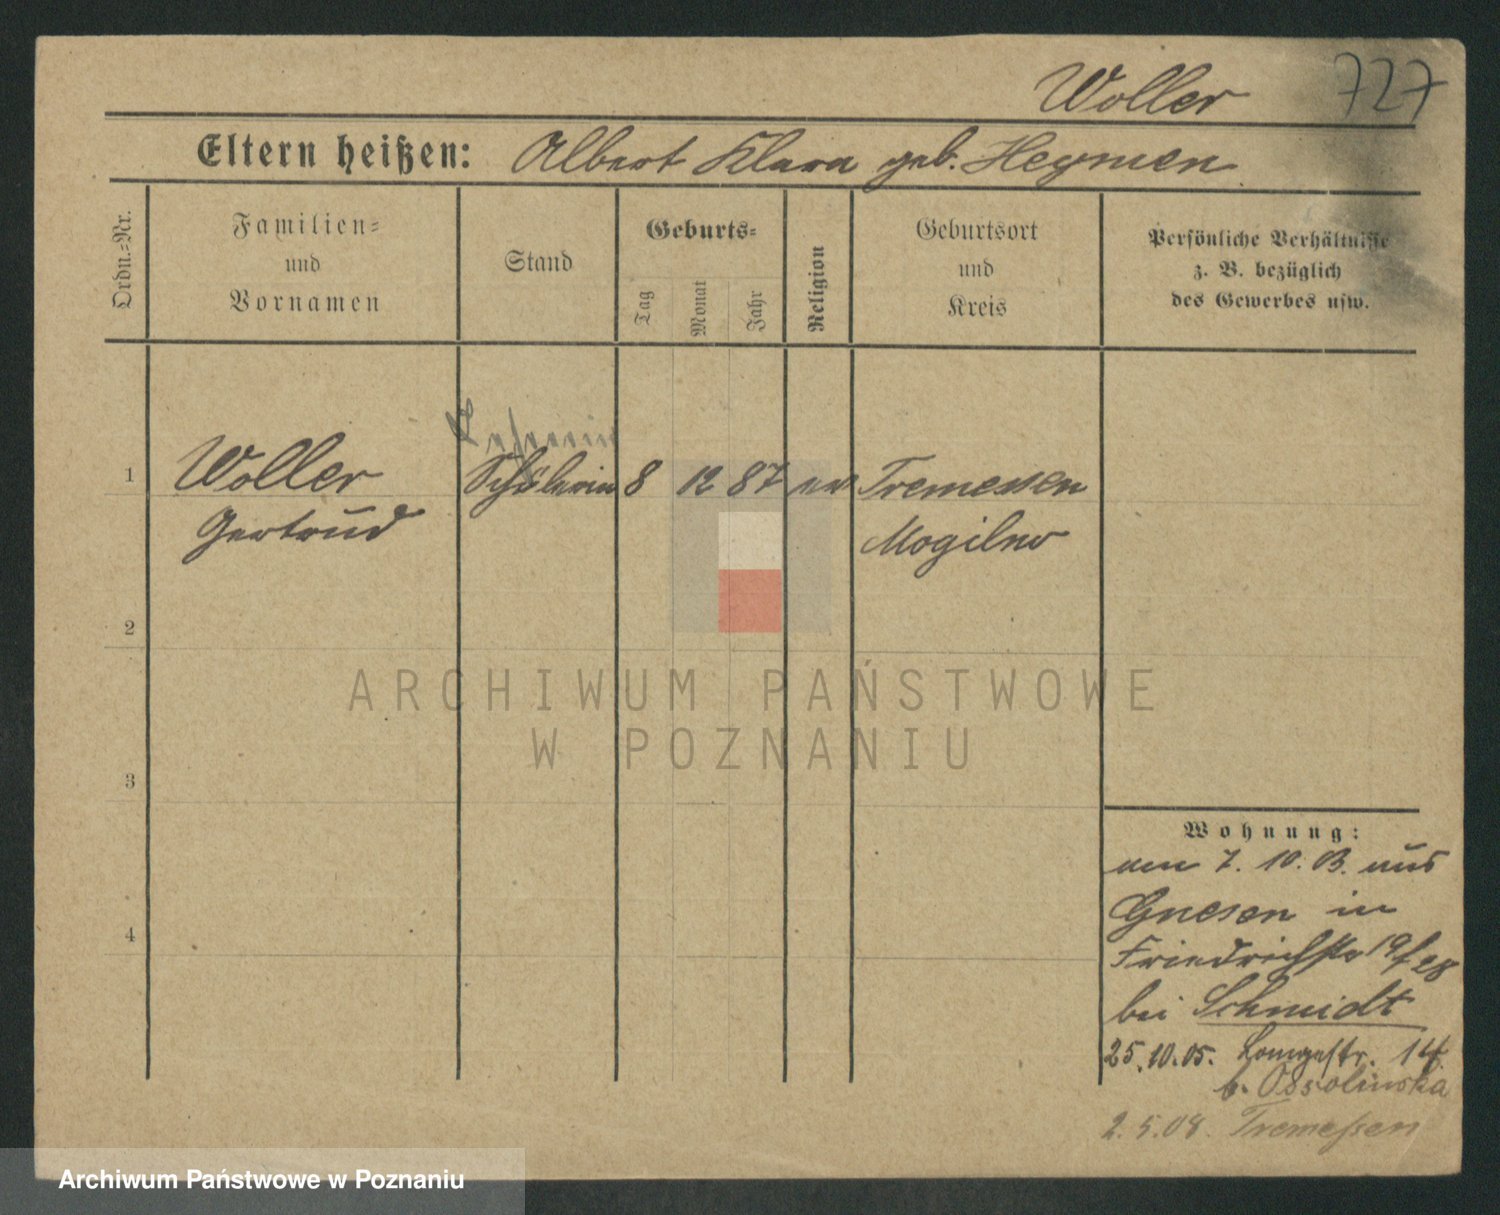 727
Woller
Eltern heißen: Albert Klara geb. Heymen
Ordn.-Nr.
Familien-
und
Vornamen
Stand
Geburts-
Tag
Monat
Jahr
Religion
Geburtsort
und
Kreis
Persönliche Verhältnisse
z. B. bezüglich
des Gewerbes usw.
Lehrerin
1 Woller Schülerin 8 12 87 ev Tremessen
Gertrud Mogilno
2
3
4
Wohnung:
am 7. 10. 03. aus
Gnesen in
Friedrichstr 19/28
bei Schmidt
25.10.05. Langestr. 14
b. Ossolinska
2.5.08. Tremeßen
ARCHIWUM PAŃSTWOWE
W POZNANIU
Archiwum Państwowe w Poznaniu